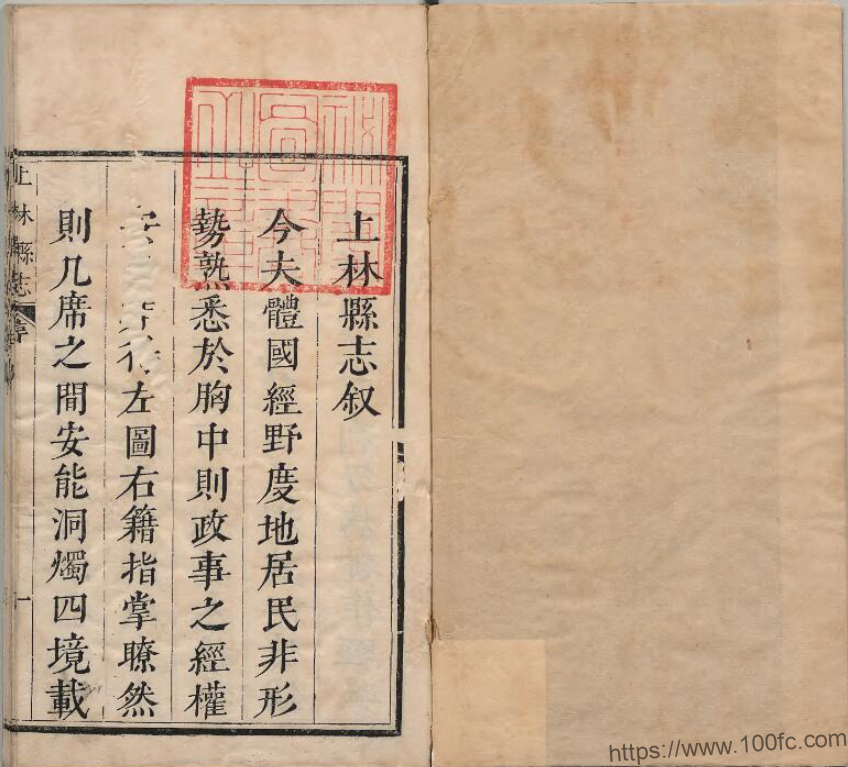 上林縣志叙
今夫體國經野度地居民非形
勢熟悉於胸中則政事之經權
左圖右籍指掌瞭然
則几席之間安能洞燭四境載
上林縣志
一
https://www.100fc.com/